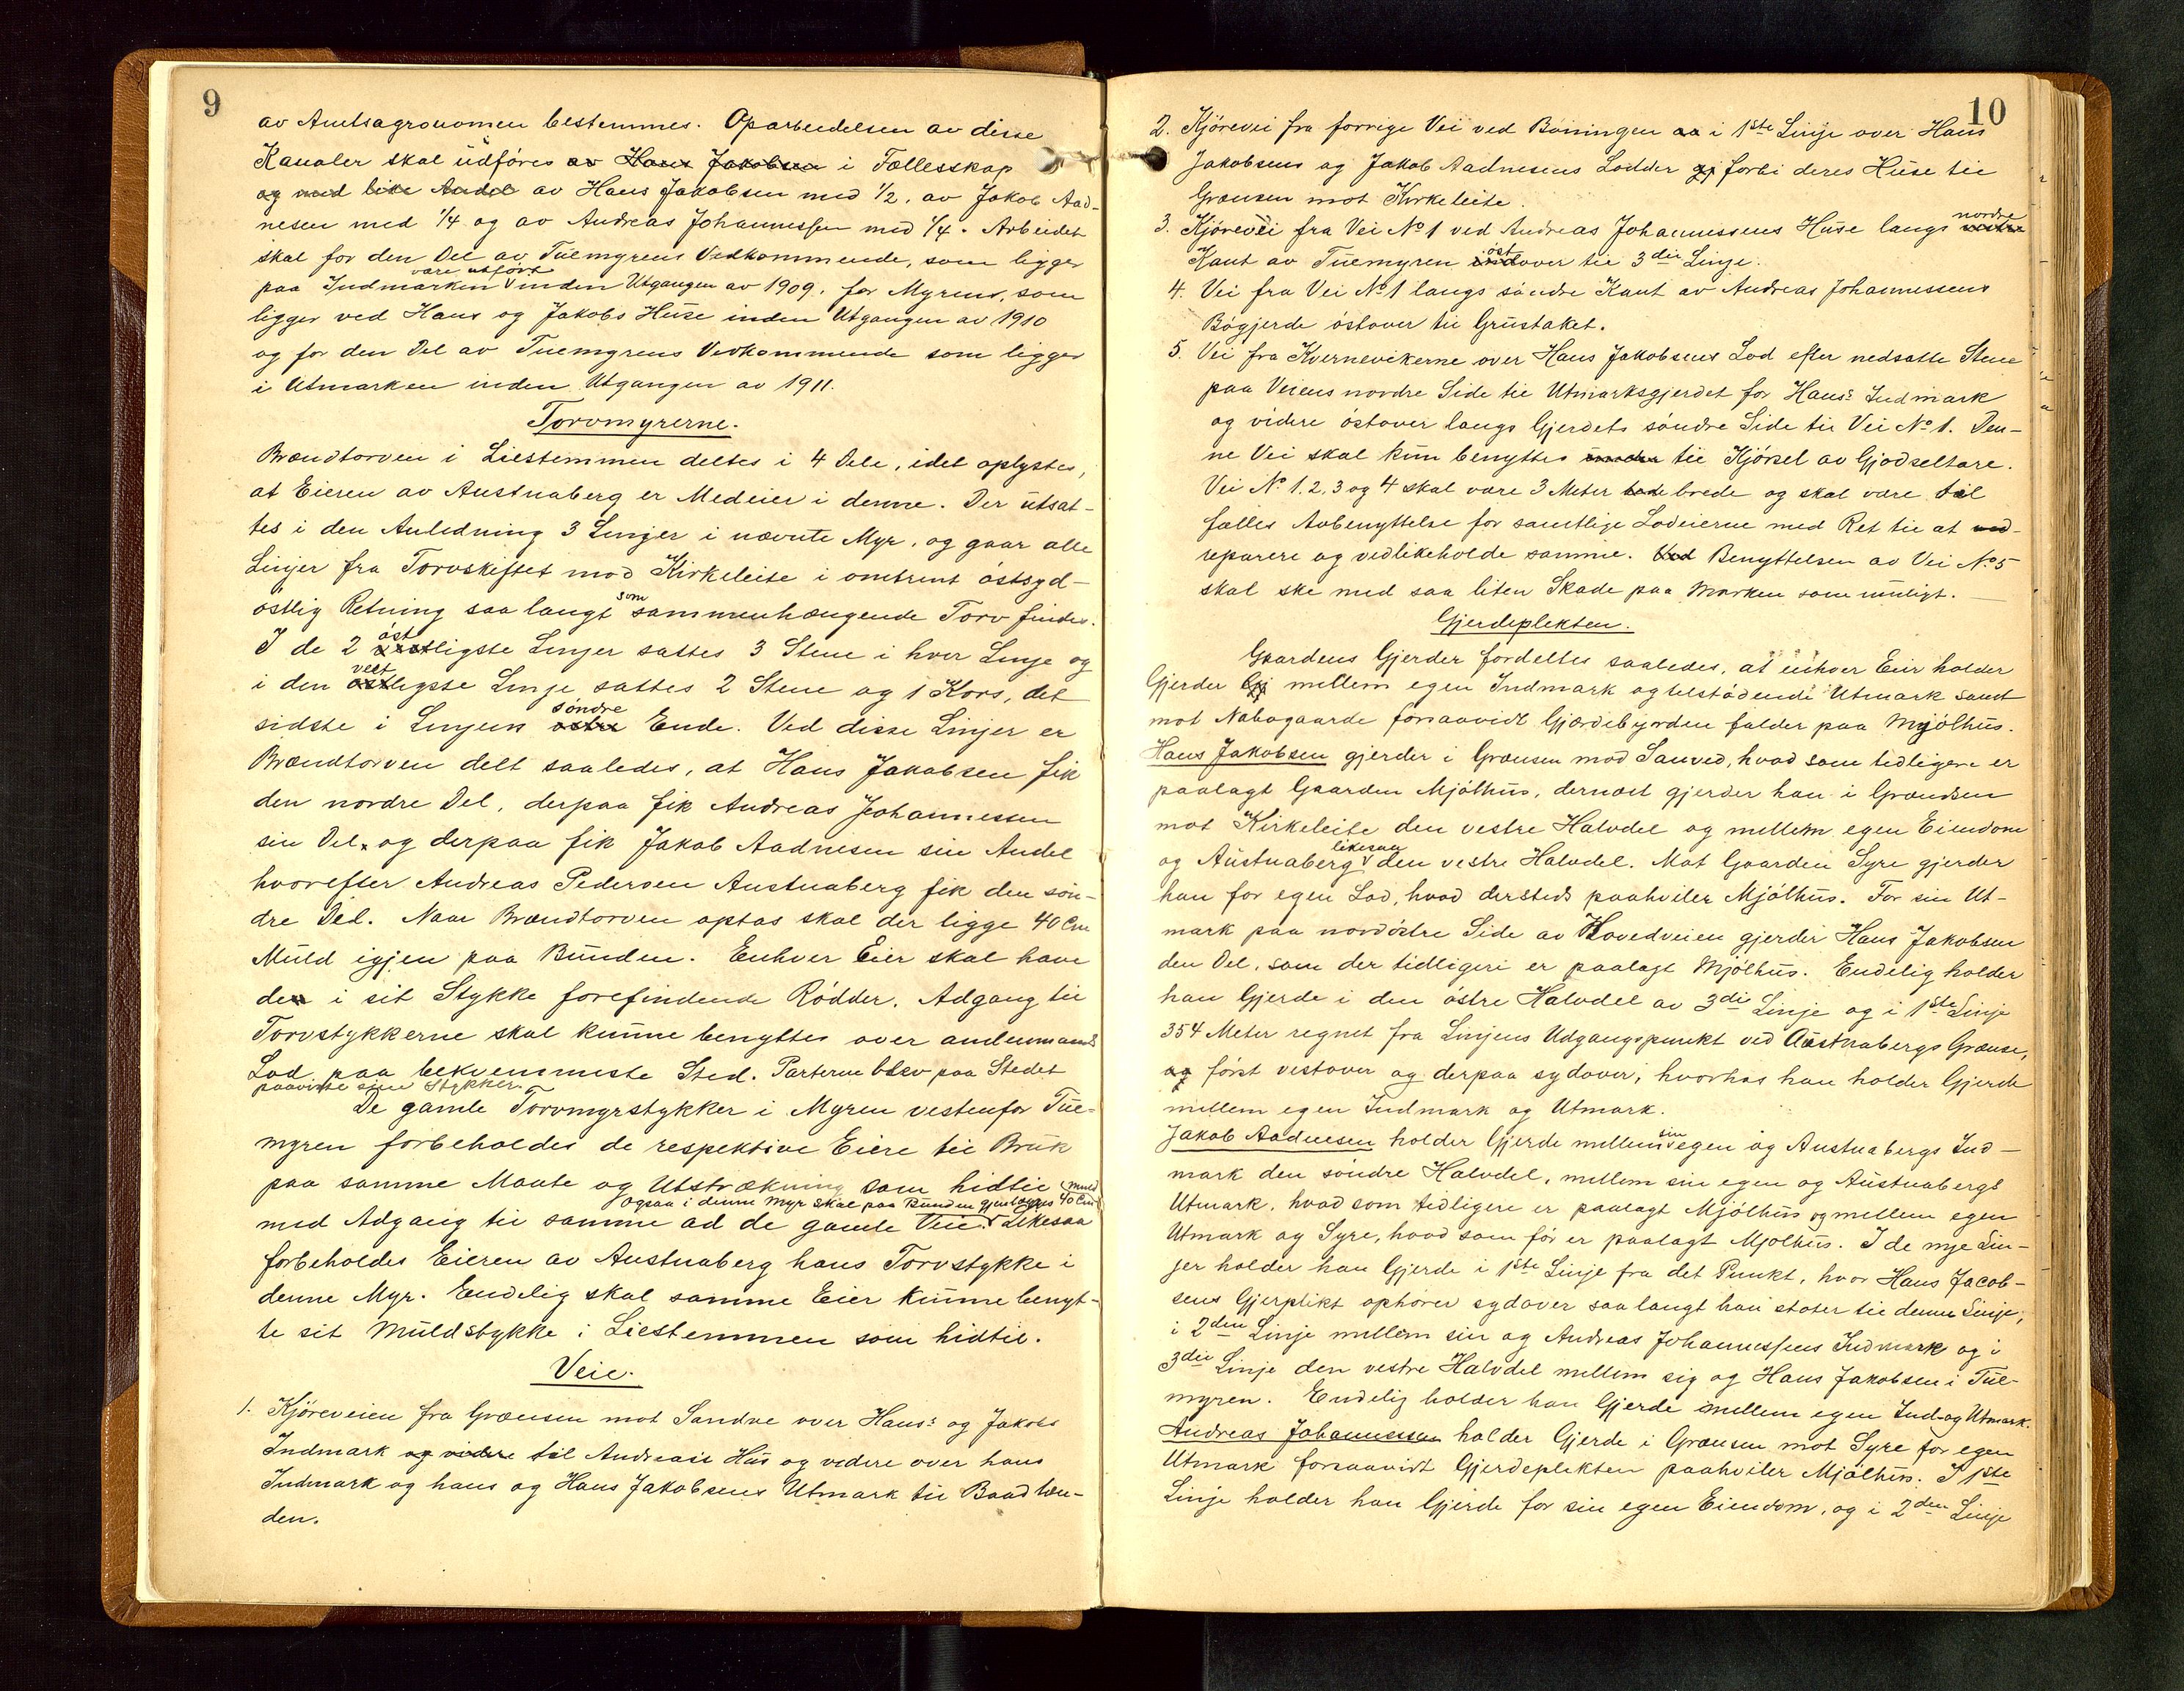 9
av Amtsagronomen bestemmes. Oparbeidelsen av disse
Kanaler skal udføres av Hans Jakobsen i Fællesskap
og med like Andel av Hans Jakobsen med 1/2, av Jakob Aad-
nesen med 1/4 og av Andreas Johannessen med 1/4. Arbeidet
skal for den Del av Tuemyrens Vedkommende, som ligger
være utført
paa Indmarken inden Utgangen av 1909, for Myrens, som
ligger ved Hans og Jakobs Huse inden Utgangen av 1910
og for den Del av Tuemyrens Vedkommende som ligger
i Utmarken inden Utgangen av 1911.
Torvmyrerne.
Brændtorven i Liestemmen deltes i 4 Dele, idet oplystes,
at Eieren av Austnaberg er Medeier i denne. Der utsat-
tes i den Anledning 3 Linjer i nævnte Myr, og gaar alle
Linjer fra Torvskiftet mod Kirkeleite i omtrent østsyd-
østlig Retning saa langt som sammenhængende Torv findes.
øst
I de 2 vestligste Linjer sattes 3 Stene i hver Linje og
vest
i den østligste Linje sattes 2 Stene og 1 Kors, det
søndre
sidste i Linjens østre Ende. Ved disse Linjer er
Brændtorven delt saaledes, at Hans Jakobsen fik
den nordre Del, derpaa fik Andreas Johannessen
sin Del, og derpaa fik Jakob Aadnesen sin Andel
hvorefter Andreas Pedersen Austnaberg fik den søn-
dre Del. Naar Brændtorven optas skal der ligge 40 Cm
Muld igjen paa Bunden. Enhver Eier skal have
de i sit Stykke forefindende Rødder. Adgang til
Torvstykkerne skal kunne benyttes over andenmands
Lod paa bekvemmeste Sted. Parterne blev paa Stedet
paaviste sine Stykker.
De gamle Torvmyrstykker i Myren vestenfor Tue-
myren forbeholdes de respektive Eiere til Bruk
paa samme Maate og Utstrækning som hidtil
ogsaa i denne Myr skal paa Bunden gjenlægges 40 Cm Muld
med Adgang til samme ad de gamle Veie. Likesaa
forbeholdes Eieren av Austnaberg hans Torvstykke i
denne Myr. Endelig skal samme Eier kunne benyt-
te sit Muldstykke i Liestemmen som hidtil.
Veie.
1. Kjøreveien fra Grænsen mot Sandve over Hans's og Jakobs
Indmark og videre til Andreas's Hus og videre over hans
Indmark og hans og Hans Jakobsens Utmark til Baadlæn-
den.
10
2. Kjørevei fra forrige Vei ved Bøiningen i 1ste Linje over Hans
Jakobsens og Jakob Aadnesens Lodder forbi deres Huse til
Grænsen mot Kirkeleite.
nordre
3. Kjørevei fra Vei No 1 ved Andreas Johannessens Huse langs vestre
øst
Kant av Tuemyren over til 3die Linje.
4. Vei fra Vei No 1 langs søndre Kant av Andreas Johannessens
Bøgjerde østover til Grustaket.
5. Vei fra Kvernevikerne over Hans Jakobsens Lod efter nedsatte Stene
paa Veiens nordre Side til Utmarksgjerdet for Hans's Indmark
og videre østover langs Gjerdets søndre Side til Vei No 1. Den-
ne Vei skal kun benyttes til Kjørsel av Gjødseltare.
Vei No 1, 2, 3 og 4 skal være 3 Meter brede og skal være til
fælles Avbenyttelse for samtlige Lodeierne med Ret til at ved-
reparere og vedlikeholde samme. Ved Benyttelsen av Vei No 5
skal ske med saa liten Skade paa Marken som muligt.
Gjerdeplikten.
Gaardens Gjerder fordeltes saaledes, at enhver Eier holder
Gjerder mellem egen Indmark og tilstødende Utmark samt
mot Nabogaarde forsaavidt Gjærdebyrden falder paa Mjølhus.
Hans Jakobsen gjerder i Grænsen mod Sanved, hvad som tidligere er
paalagt Gaarden Mjølhus, dernæst gjerder han i Grændsen
mot Kirkeleite den vestre Halvdel og mellem egen Eiendom
likesaa
og Austnaberg den vestre Halvdel. Mot Gaarden Syre gjerder
han for egen Lod, hvad dersteds paahviler Mjølhus. For sin Ut-
mark paa nordøstre Side av Hovedveien gjerder Hans Jakobsen
den Del, som der tidligere er paalagt Mjølhus. Endelig holder
han Gjerde i den østre Halvdel av 3die Linje og i 1ste Linje
354 Meter regnet fra Linjens Udgangspunkt ved Austnabergs Grænse,
og først vestover og derpaa sydover, hvorhos han holder Gjerde
mellem egen Indmark og Utmark.
Jakob Aadnesen holder Gjerde mellem sin egen og Austnabergs Ind-
mark den søndre Halvdel, mellem sin egen og Austnabergs
Utmark, hvad som tidligere er paalagt Mjølhus og mellem egen
Utmark og Syre, hvad som før er paalagt Mjølhus. I de nye Lin-
jer holder han Gjerde i 1ste Linje fra det Punkt, hvor Hans Jacob-
sens Gjerplikt ophører sydover saa langt han støter til denne Linje,
i 2den Linje mellem sin og Andreas Johannessens Indmark og i
3die Linje den vestre Halvdel mellem sig og Hans Jakobsen i Tue-
myren. Endelig holder han Gjerde mellem egen Ind- og Utmark.
Andreas Johannessen holder Gjerde i Grænsen mot Syre for egen
Utmark forsaavidt Gjerdeplikten paahviler Mjølhus. I 1ste
Linje holder han Gjerde for sin egen Eiendom, og i 2den Linje